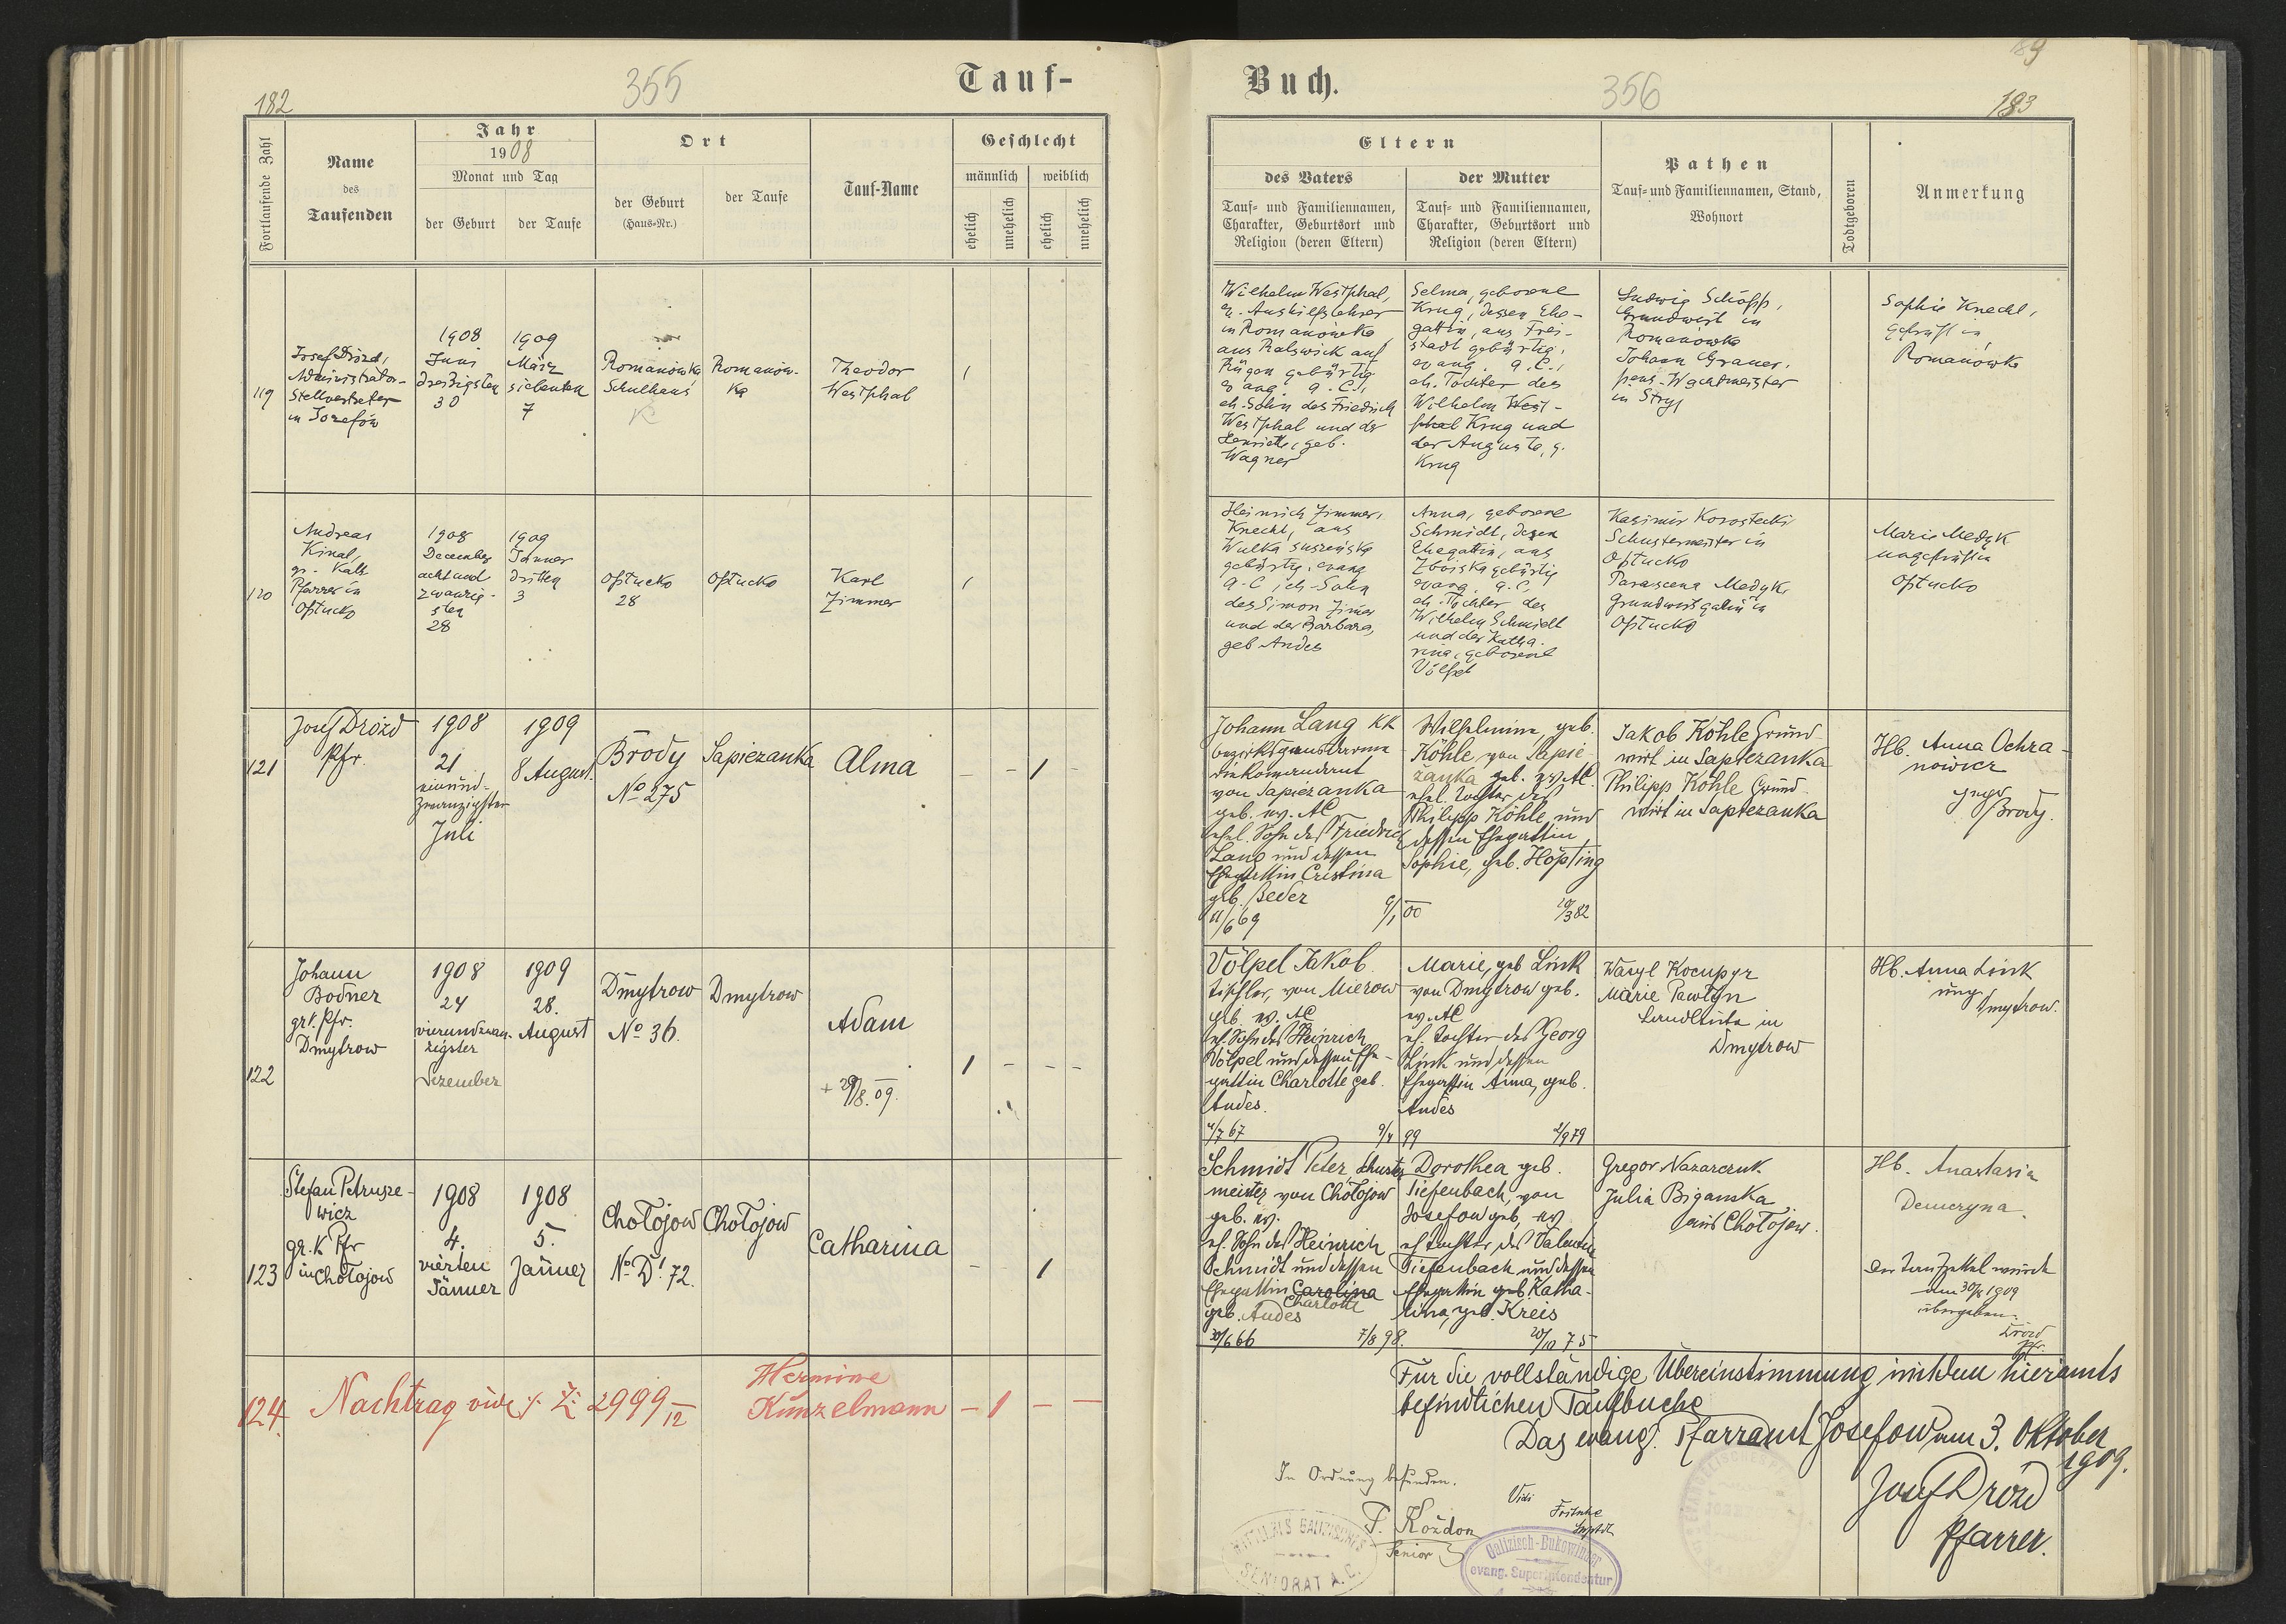 182
355
Tauf-
Fortlaufende Zahl
Name
des
Taufenden
Jahr
1908
Monat und Tag
der Geburt
der Taufe
Ort
der Geburt
(Haus-Nr.)
der Taufe
Tauf-Name
Geschlecht
männlich
weiblich
ehelich
unehelich
ehelich
unehelich
119
Josef Drózd,
Administrator-
Stellvertreter
in Josefów
1908
Juni
dreißigsten
30
1909
März
siebenten
7
Romanówka
Schulhaus
Romanów-
ka
Theodor
Westphal
1
120
Andreas
Kinal,
gr. Kath
Pfarrer in
1908
December
acht und
zwanzig-
sten
28
1909
Jänner
dritten
3
28
Karl
Zimmer
1
121
Josef Drózd
Pfr.
1908
21
einund-
zwanzigster
Juli
1909
8 August.
Brody
No 275
Sapiezanka
Alma
– – 1 –
122
Johann
Bodner
grk. Pfr.
Dmytrow
1908
24
vierundzwan-
zigster
Dezember
1909
28.
August
Dmytrow
No 36.
Dmytrow
Adam
+ 29/8. 09.
1 – – –
123
Stefan Petrusze-
wicz
gr. K Pfr
in Chołojow
1908
4.
vierten
Jänner
1908
5.
Jänner
Chołojow
No D. 72.
Chołojow
Catharina
– – 1
124.
Nachtrag vide
Z: 2999/12
Hermine
Kunzelmann
– 1 – –
Buch.
356
189
183
Eltern
des Vaters
Tauf- und Familiennamen,
Charakter, Geburtsort und
Religion (deren Eltern)
der Mutter
Tauf- und Familiennamen,
Charakter, Geburtsort und
Religion (deren Eltern)
Pathen
Tauf- und Familiennamen, Stand,
Wohnort
Todtgeboren
Anmerkung
Wilhelm Westphal,
ev. Aushilfslehrer
in Romanówka
aus Ralswick auf
Rügen gebürtig
evang. A.C.,
eh. Sohn des Friedrich
Westphal und der
Henriette, geb.
Wagner
Selma, geborene
Krug, dessen Ehe-
gattin, aus Frei-
stadt gebürtig,
evang. A.C.,
eh. Tochter des
Wilhelm West-
phal Krug und
der Auguste, g.
Krug
Ludwig Schöpp,
Grundwirt in
Romanówka
Johann Grauer,
pens. Wachtmeister
in Stryj
Sophie Knecht,
geprüft in
Romanówka
Heinrich Zimmer,
Knecht, aus
Wulka suszeńska
gebürtig, evang
A.C, eh. Sohn
des Simon Zimer
und der Barbara,
geb Andes
Anna, geborene
Schmidt, dessen
Ehegattin, aus
Zboiska gebürtig
evang. A.C,
eh. Tochter des
Wilhelm Schmidt
und der Katha-
rina, geborene
Völpel
Kasimir Korostecki
Schustermeister in
Parascena Medyk,
Grundwirtsgattin in
Marie Medyk
ungeprüft in
Johann Lang kk
Bezirksgendarme-
riekomandant
von Sapiezanka
geb. ev. AC
ehel. Sohn des Friedrich
Lang und dessen
Ehegattin Cristina
geb. Beder
11/6 69
9/1 00
Wilhelmine, geb.
Köhle von Sapie-
zanka geb. ev AC
ehel. Tochter des
Philipp Köhle und
dessen Ehegattin
Sophie, geb. Höpfing
19/3 82
Jakob Köhle Grund-
wirt in Sapiezanka
Philipp Köhle Grund-
wirt in Sapiezanka
Hb. Anna Ochra-
nowicz
Brody.
Völpel Jakob
Tischler, von Mierow
geb. ev. AC
eh. Sohn des Heinrich
Völpel und dessen Ehe-
gattin Charlotte geb.
Andes.
4/7 67
9/4 99
Marie, geb Link
von Dmytrow geb.
ev. AC
eh. Tochter des Georg
Link und dessen
Ehegattin Anna, geb.
Andes
2/9 79
Wasyl Kocupyr
Marie Pawlyn
Landleute in
Dmytrow
Hb. Anna Link
ung.
Dmytrow.
Schmidt Peter Schuster
meister von Chołojow
geb. ev.
eh. Sohn des Heinrich
Schmidt und dessen
Ehegattin Carolina
Charlotte
geb. Andes
30/6 66
7/8 98.
Dorothea geb.
Tiefenbach, von
Josefow geb, ev
eh Tochter des Valentin
Tiefenbach und dessen
Ehegattin geb. Katha-
rina, geb. Kreis
20/10 75
Gregor Nazarczuk
Julia Biganska
aus Chołojow.
Hb. Anastasia
Demczyna.
Der Taufzettel wurde
übergeben.
Drózd
Pfr.
Für die vollständige Übereinstimmung mit dem hieramts
befindlichen Taufbuche
Das evang. Pfarramt Josefow am 3. Oktober
1909.
Josef Drózd
Pfarrer.
In Ordnung befunden.
F. Kożdon
Senior
Vidi
Fritsche
Suptdt
GALIZISCHES
SENIORAT A.C.
Galizisch-Bukowinaer
evang. Superintendentur